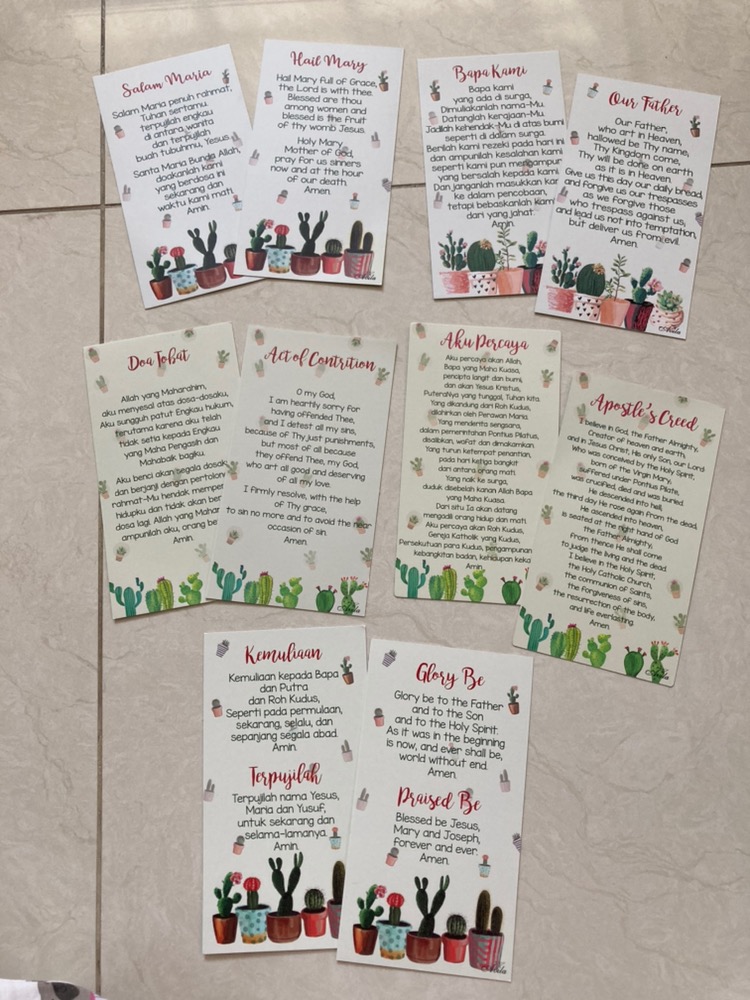 Salam Maria
Salam Maria penuh rahmat,
Tuhan sertamu.
terpujilah engkau
di antara wanita
dan terpujilah
buah tubuhmu, Yesus
Santa Maria Bunda Allah,
doakanlah kami
yang berdosa ini
sekarang dan
waktu kami mati
Amin.
Hail Mary
Hail Mary full of Grace,
the Lord is with thee.
Blessed are thou
among women and
blessed is the fruit
of thy womb Jesus.
Holy Mary
Mother of God,
pray for us sinners
now and at the hour
of our death.
Amen.
Bapa Kami
Bapa kami
yang ada di surga,
Dimuliakanlah nama-Mu.
Datanglah kerajaan-Mu.
Jadilah kehendak-Mu di atas bumi
seperti di dalam surga.
Berilah kami rezeki pada hari ini
dan ampunilah kesalahan kami
seperti kami pun mengampuni
yang bersalah kepada kami.
Dan janganlah masukkan kami
ke dalam pencobaan,
tetapi bebaskanlah kami
dari yang jahat.
Amin.
Our Father
Our Father,
who art in Heaven,
hallowed be Thy name,
Thy Kingdom come,
Thy will be done on earth
as it is in Heaven
Give us this day our daily bread,
and forgive us our trespasses
as we forgive those
who trespass against us,
and lead us not into temptation,
but deliver us from evil.
Amen.
Doa Tobat
Allah yang Maharahim,
aku menyesal atas dosa-dosaku,
Aku sungguh patut Engkau hukum,
terutama karena aku telah
tidak setia kepada Engkau
yang Maha Pengasih dan
Mahabaik bagiku.
Aku benci akan segala dosaku
dan berjanji dengan pertolongan
rahmat-Mu hendak memper
hidupku dan tidak akan ber
dosa lagi. Allah yang Mahar
ampunilah aku, orang be
Amin.
Act of Contrition
O my God,
I am heartily sorry for
having offended Thee,
and I detest all my sins,
because of Thy just punishments,
but most of all because
they offend Thee, my God,
who art all good and deserving
of all my love.
I firmly resolve, with the help
of Thy grace,
to sin no more and to avoid the near
occasion of sin
Amen.
Aku Percaya
Aku percaya akan Allah,
Bapa yang Maha Kuasa,
pencipta langit dan bumi,
dan akan Yesus Kristus,
Puteranya yang tunggal, Tuhan kita.
Yang dikandung dari Roh Kudus,
dilahirkan oleh Perawan Maria
Yang menderita sengsara,
dalam pemerintahan Pontius Pilatus,
disalibkan, wafat dan dimakamkan.
Yang turun ketempat penantian,
pada hari ketiga bangkit
dari antara orang mati
Yang naik ke surga,
duduk disebelah kanan Allah Bapa
yang Maha Kuasa.
Dari situ Ia akan datang
mengadili orang hidup dan mati
Aku percaya akan Roh Kudus,
Gereja Katholik yang Kudus,
Persekutuan para Kudus, pengampunan
kebangkitan badan, kehidupan keka
Amin.
Apostle's Creed
I believe in God, the Father Almighty,
Creator of heaven and earth,
and in Jesus Christ, His only Son, our Lord
Who was conceived by the Holy Spirit,
born of the Virgin Mary,
suffered under Pontius Pilate,
was crucified, died and was buried.
He descended into hell;
the third day He rose again from the dead;
He ascended into heaven,
is seated at the right hand of God
the Father Almighty;
From thence He shall come
to judge the living and the dead
I believe in the Holy Spirit;
the Holy Catholic Church,
the communion of Saints,
the forgiveness of sins,
the resurrection of the body,
and life everlasting.
Amen.
Kemuliaan
Kemuliaan kepada Bapa
dan Putra
dan Roh Kudus,
Seperti pada permulaan,
sekarang, selalu, dan
sepanjang segala abad.
Amin.
Terpujilah
Terpujilah nama Yesus,
Maria dan Yusuf,
untuk sekarang dan
selama-lamanya
Amin.
Glory Be
Glory be to the Father
and to the Son
and to the Holy Spirit.
As it was in the beginning
is now, and ever shall be,
world without end.
Amen.
Praised Be
Blessed be Jesus,
Mary and Joseph,
forever and ever.
Amen.